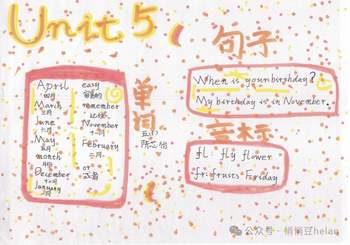 Unit 5
句子
When is your birthday?
My birthday is in November.
单词
April
四月
March
三月
June
六月
May
五月
month
月
December
十二月
January
一月
easy
容易的
remember
记住
November
十一月
February
二月
音标
fl: fly flower
fr: fruits Friday
公众号·悄悄豆helan